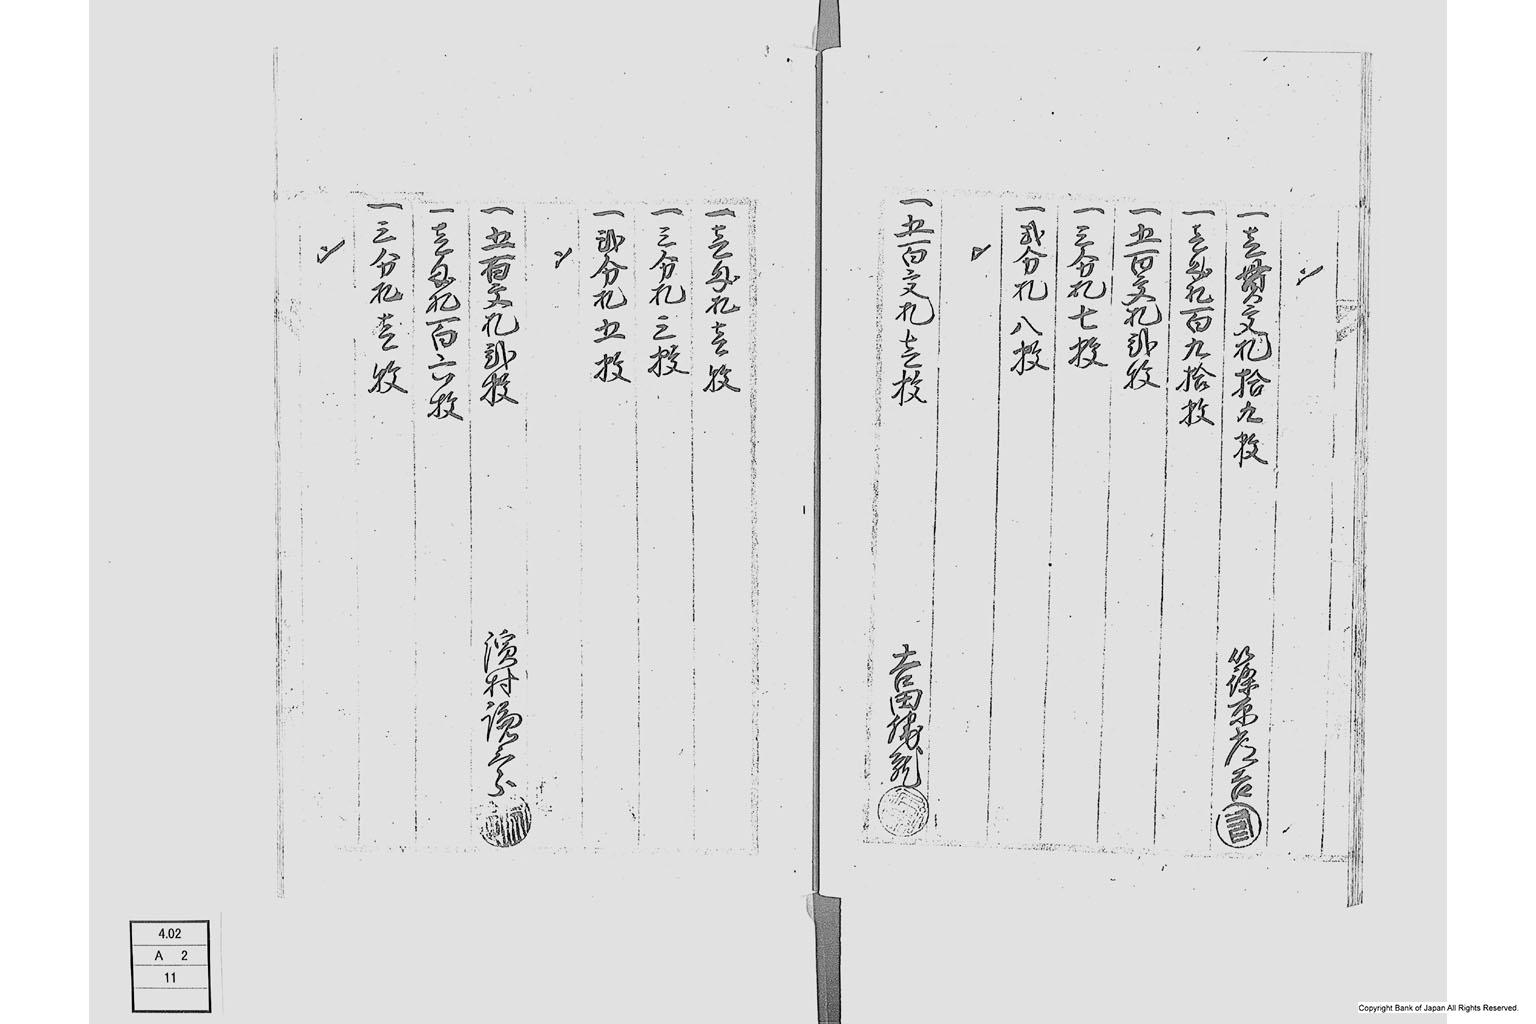 一壱貫文札拾九枚
篠原彦吉
一壱匁札百九拾枚
一五百文札弐枚
一三分札七枚
一弐分札八枚
一五百文札壱枚
吉田勝
一壱匁札壱枚
一三分札三枚
一弐分札五枚
一五百文札弐枚
濱村
一壱匁札百六枚
一三分札壱枚
4.02
A 2
11
Copyright Bank of Japan All Rights Reserved.